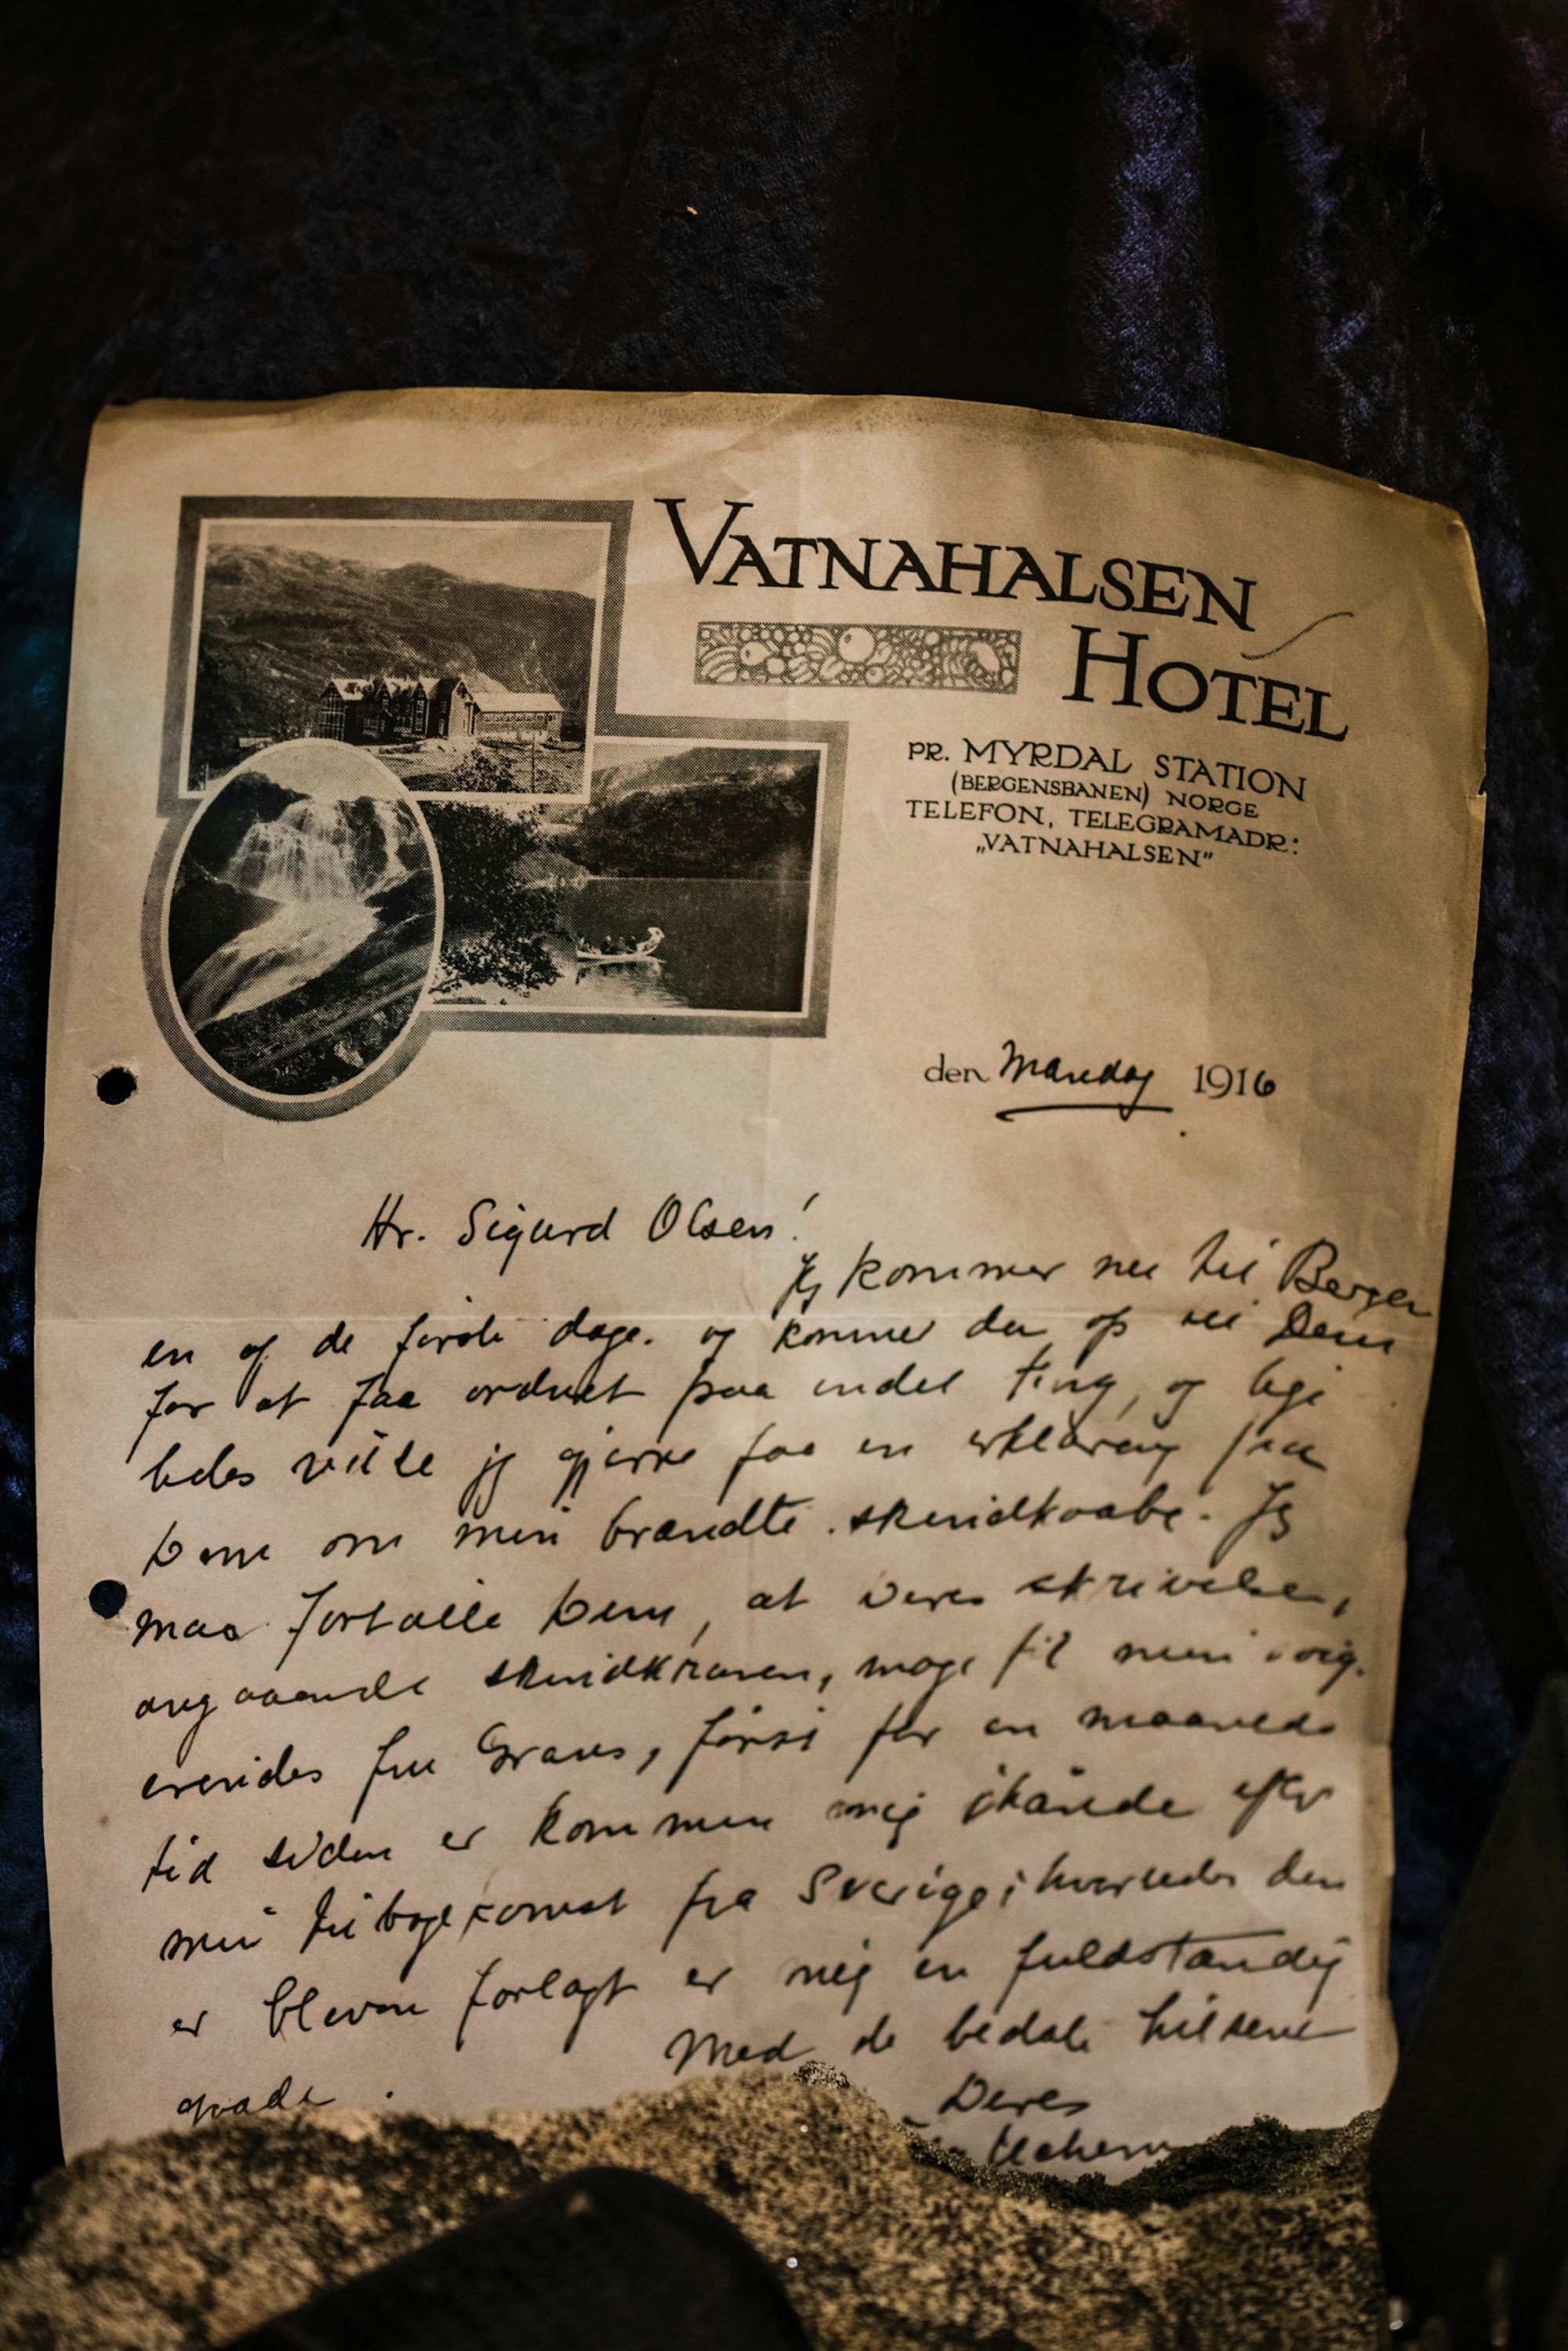 VATNAHALSEN
HOTEL
PR. MYRDAL STATION
(BERGENSBANEN) NORGE
TELEFON, TELEGRAMADR:
„VATNAHALSEN”
den Mandag 1916
Hr. Sigurd Olsen!
Jeg kommer nu til Bergen
en af de første dage. og kommer da op til Dem
for at faa ordnet paa endel ting, og lige
ledes vilde jeg gjerne faa en erklæring fra
Dem om min brændte skindkaabe. Jeg
maa fortælle Dem, at Deres skrivelse,
angaaende skindkraven,
fru først for en maaneds
tid siden er kommen mig ihænde efter
min tilbagekomst fra Sverige; hvorledes den
er bleven forlagt er mig en fuldstændig
gaade.
Med de bedste hilsener
Deres